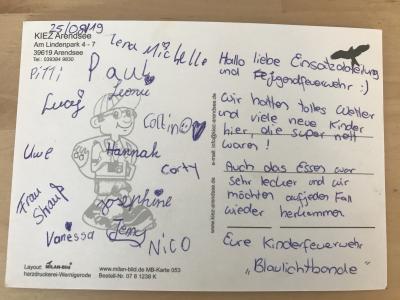 25/08/19
KIEZ Arendsee
Am Lindenpark 4 - 7
39619 Arendsee
Tel.: 039384 9830
Lena Michelle
Pitti
Paul
Leonie
Lucas
Uwe
Hannah
Corty
Frau
Josephine
Jenny
Vanessa
Nico
Layout: MILAN-Bild
herzdruckerei-Wernigerode
www.milan-bild.de MB-Karte 053
Bestell-Nr. 07 8 1238 K
www.kiez-arendsee.de
e-mail: info@kiez-arendsee.de
Hallo liebe Einsatzabteilung
und Fejgendfeuerwehr :)
Wir hatten tolles Wetter
und viele neue Kinder
hier, die super nett
waren!
Auch das Essen war
sehr lecker und wir
möchten aufjeden Fall
wieder herkommen
Eure Kinderfeuerwehr
"Blaulichtbande"